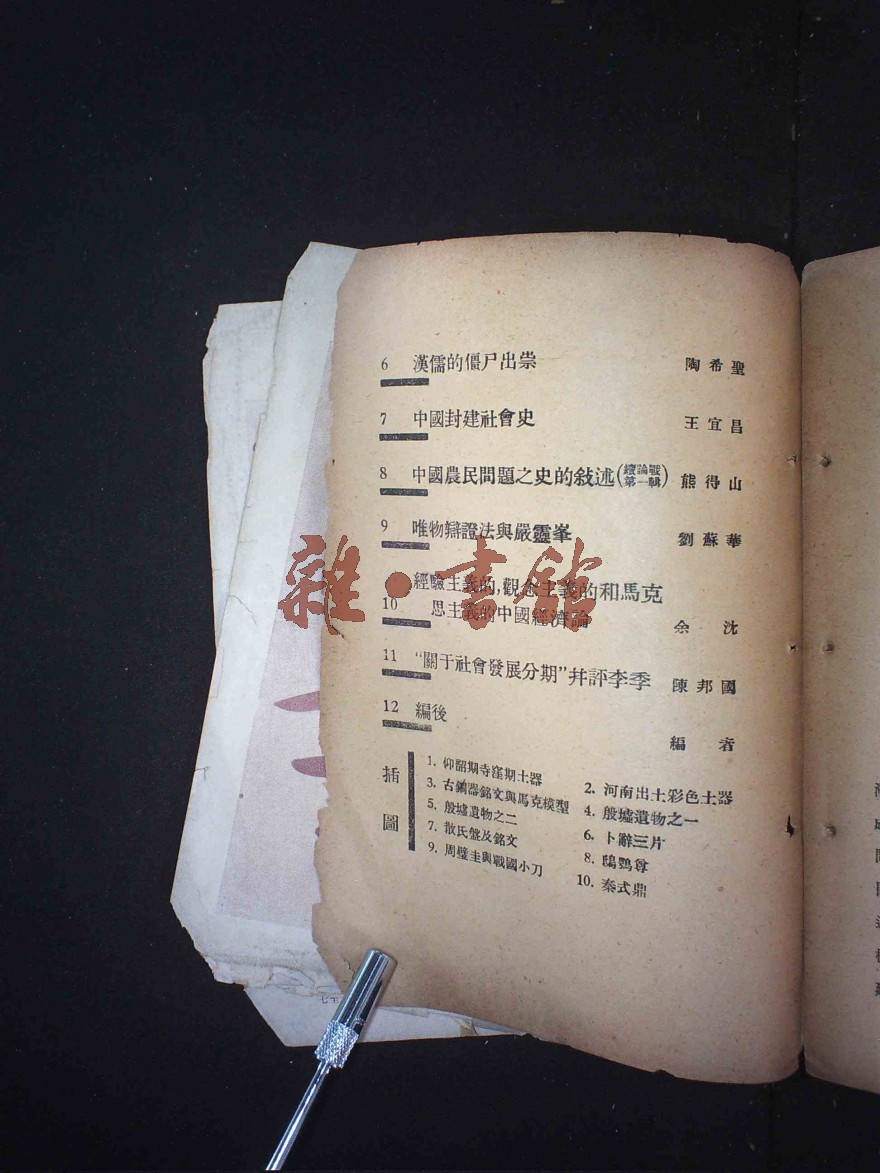 6 漢儒的僵尸出祟 陶希聖
7 中國封建社會史 王宜昌
8 中國農民問題之史的敍述(續論戰第一輯) 熊得山
9 唯物辯證法與嚴靈峯 劉蘇華
10 經驗主義的,觀念主義的和馬克
思主義的中國經濟論 余沈
11 “關于社會發展分期”并評李季 陳邦國
12 編後 編者
插圖
1. 仰韶期寺窪期土器 2. 河南出土彩色土器
3. 古銅器銘文與馬克模型 4. 殷墟遺物之一
5. 殷墟遺物之二 6. 卜辭三片
7. 散氏盤及銘文 8. 鴟鴞尊
9. 周璧圭與戰國小刀 10. 秦式鼎
雜·書館